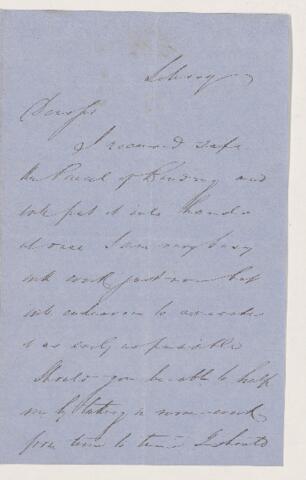 Dear Sir
I received safe
the Parcel of Binding and
will put it into hands
at once I am very busy
with work just now but
will endeavour to
it as early as possible
Should you be able to help
me by taking in some work
from time to time I should